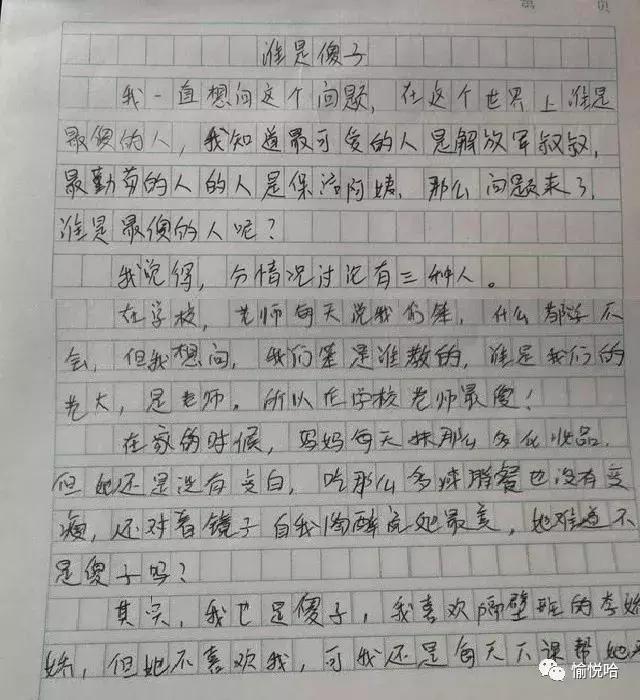 谁是傻子
我一直想问这个问题，在这个世界上谁是
最傻的人，我知道最可爱的人是解放军叔叔，
最勤劳的人的人是保洁阿姨，那么问题来了，
谁是最傻的人呢？
我觉得，分情况讨论有三种人。
在学校，老师每天说我们笨，什么都学不
会，但我想问，我们笨是谁教的，谁是我们的
老大，是老师。所以在学校老师最傻！
在家的时候，妈妈每天抹那么多化妆品，
但她还是没有变白，吃那么多减脂餐也没有变
瘦，还对着镜子自我陶醉说她最美，她难道不
是傻子吗？
其实，我也是傻子，我喜欢隔壁班的李
，但她不喜欢我，可我还是每天下课帮她
愉悦哈